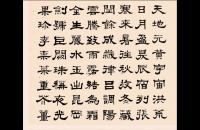 天地元黃宇宙洪荒
日月盈昃辰宿列張
寒來暑往秋收冬藏
閏餘成歲律呂調陽
雲騰致雨露結為霜
金生麗水玉出崑岡
劍號巨闕珠稱夜光
果珍李柰菜重芥薑